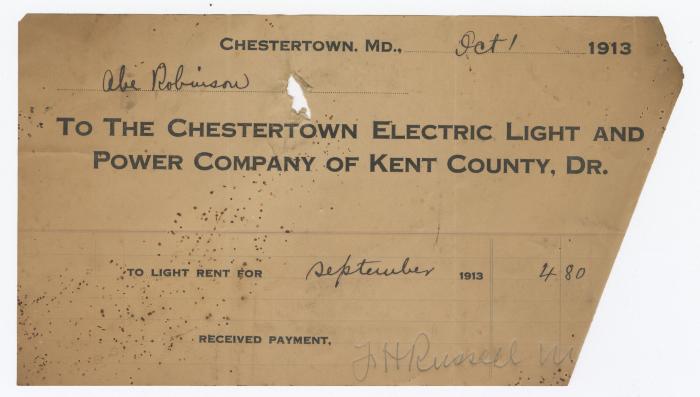 CHESTERTOWN. MD., Oct 1 1913
Abe Robinson
TO THE CHESTERTOWN ELECTRIC LIGHT AND
POWER COMPANY OF KENT COUNTY, DR.
TO LIGHT RENT FOR September 1913 4 80
RECEIVED PAYMENT, Russell